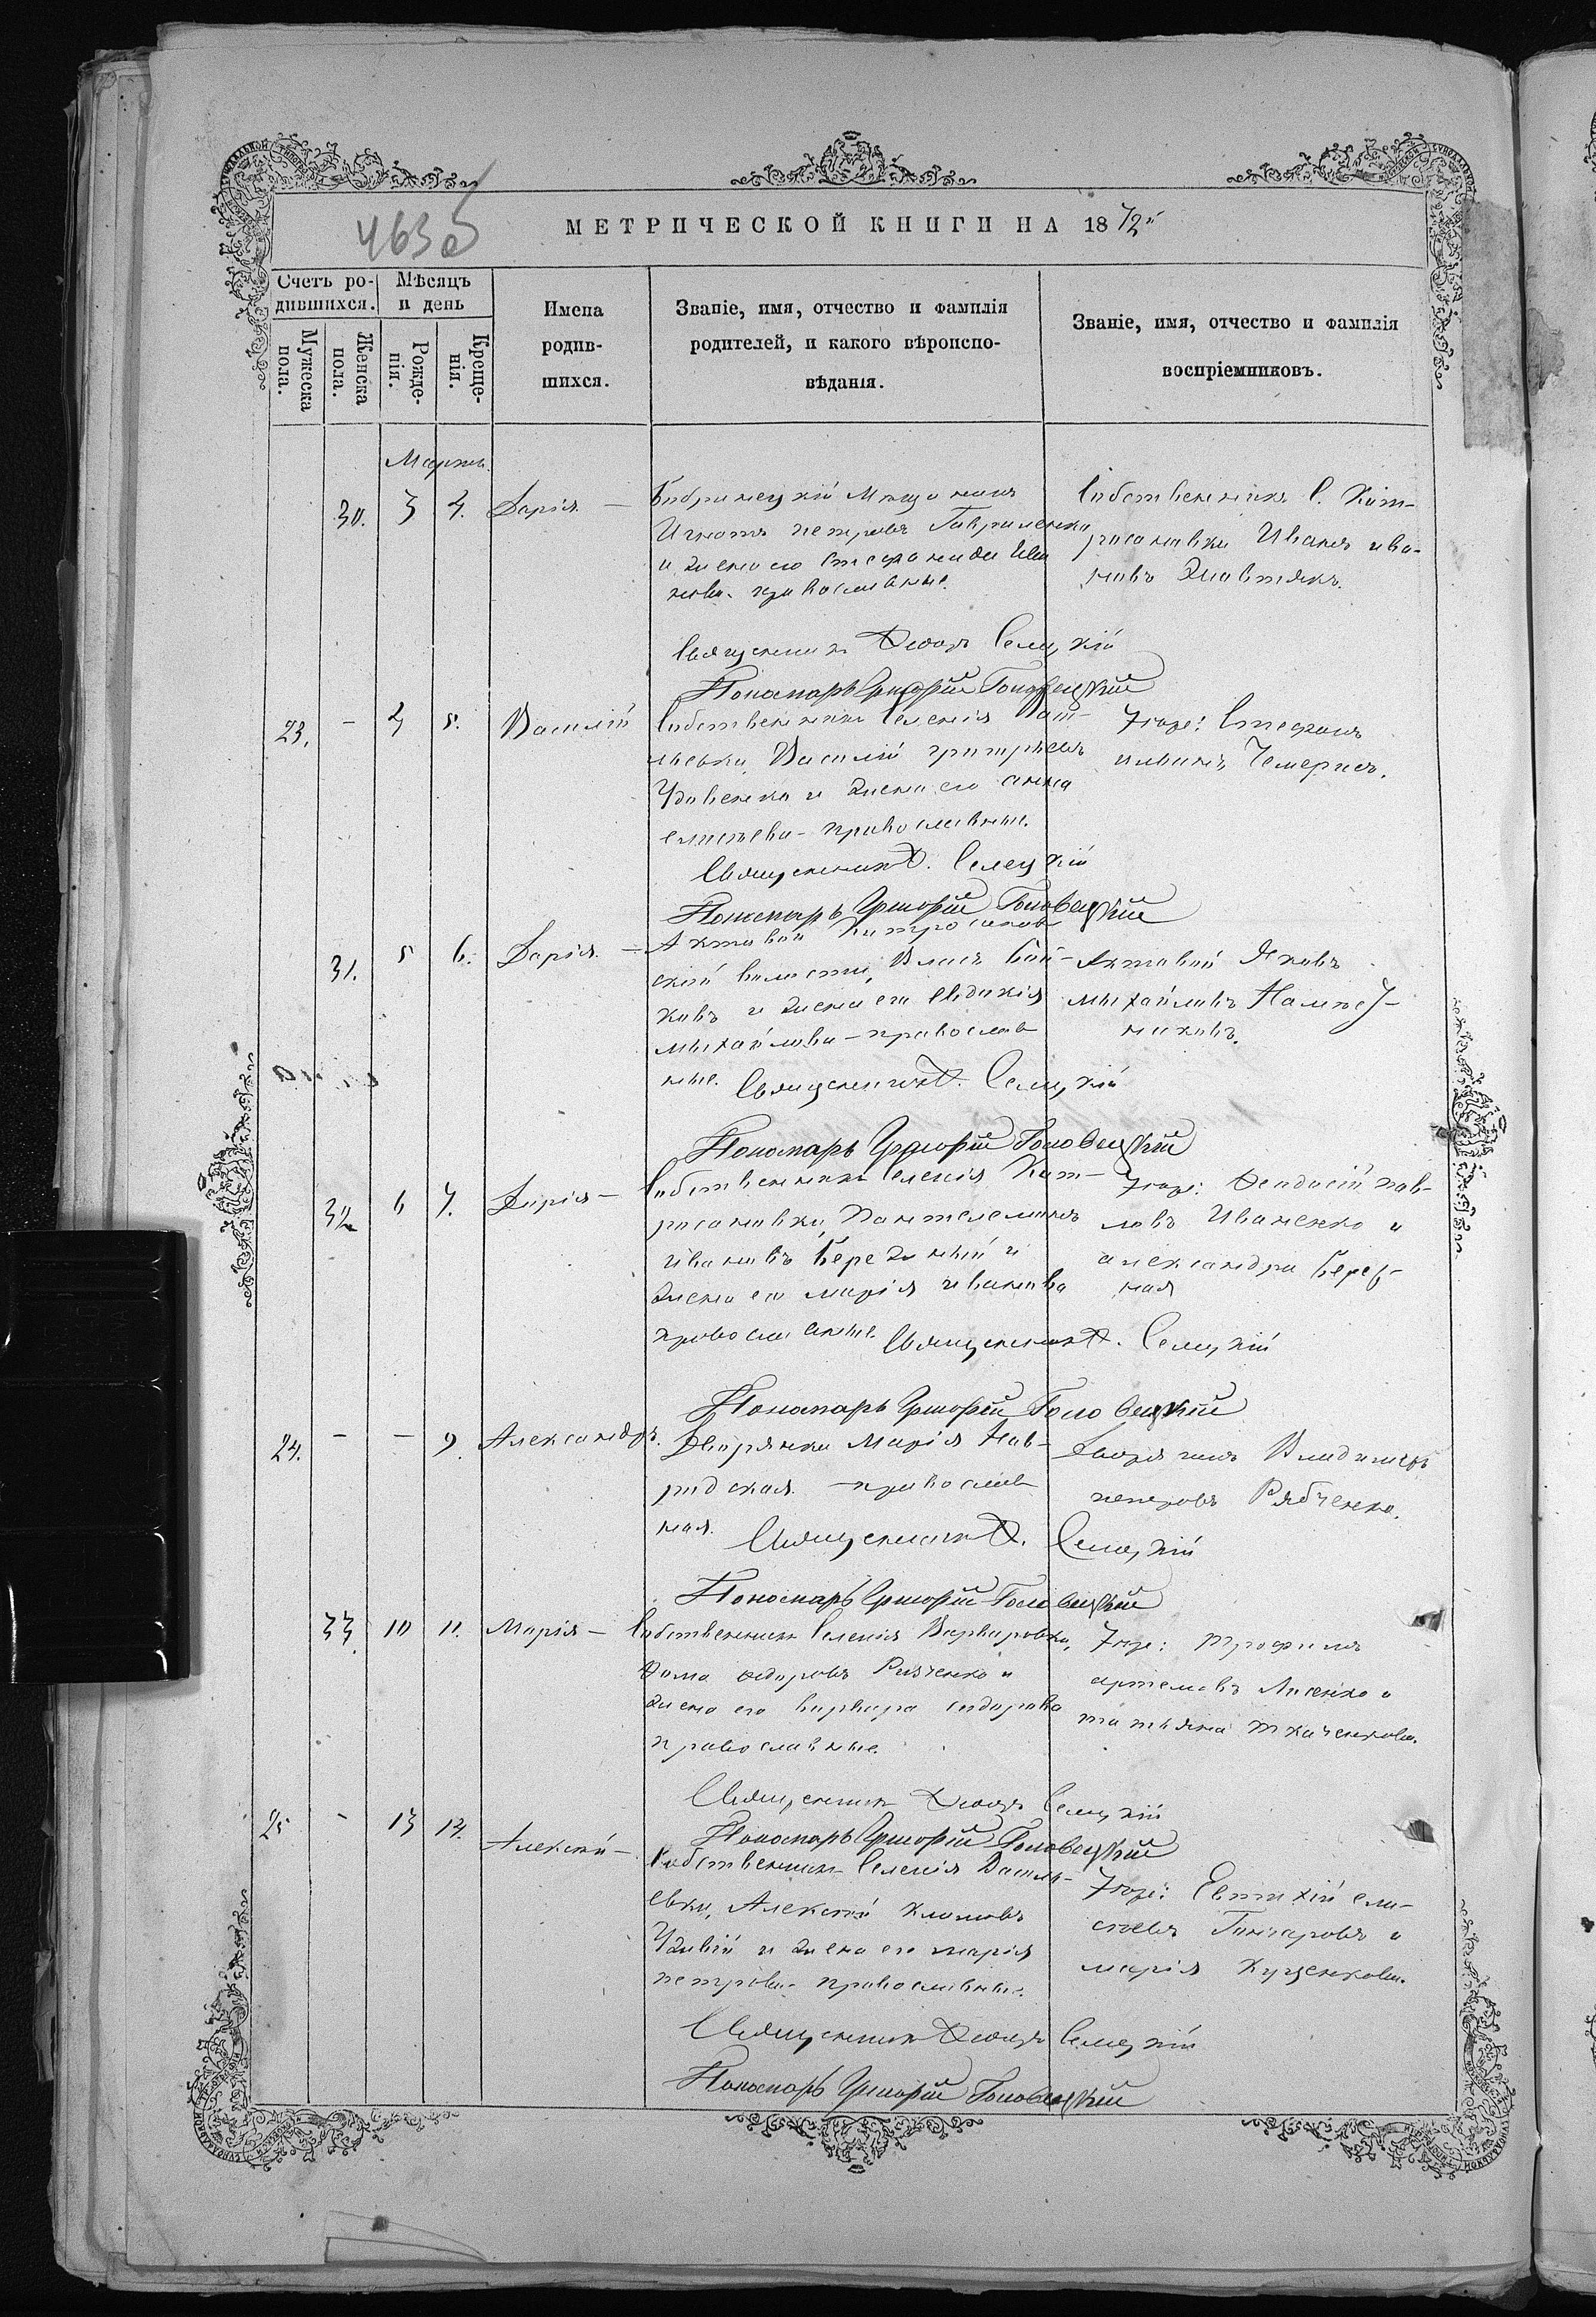 463 об
МЕТРИЧЕСКОЙ КНИГИ НА 1872й
Счетъ ро-
дившихся.
Мѣсяцъ
и день
Мужеска
пола.
Женска
пола.
Рожде-
нія.
Креще-
нія.
Имена
родив-
шихся.
Званіе, имя, отчество и фамилія
родителей, и какого вѣроиспо-
вѣданія.
Званіе, имя, отчество и фамилія
воспріемниковъ.
Мартъ.
30. 3 4. Дарія —
Бобринецкій Мещанинъ
Игнатъ петровъ Гавриленко
и жена его стефанида Ива
нова. православные.
Собственникъ С. Кит-
росановки Иванъ ива-
новъ
Священникъ Ѳеодоръ Селецкій
Пономарь Григорій Головецкій
23. - 4 5. Василій
Собственникъ Селенія Васи-
льевки, Василій григорьевъ
Удовенко и жена его анна
православные.
Тоже: Стефанъ
Чемерисъ.
Священникъ Ѳ. Селецкій
Пономарь Григорій Головецкій
31. 5 6. Дарія. —
Актовой Китросанов
ской волости, Власъ Бой-
ковъ и жена его Евдокія
михайлова — православ
ные.
Актовой Яковъ
михайловъ
никовъ.
Священникъ Ѳ. Селецкій
Пономарь Григорій Головецкій
32 6 7. Дарія —
Собственникъ Селенія Кит-
росановки, Пантелеимонъ
ивановъ Бережный и
жена его марія иванова
православные.
Тоже: Ѳеодосій пав-
ловъ Иваненко и
александра Береж-
ная
Священникъ Ѳ. Селецкій
Пономарь Григорій Головецкій
24. - - 9. Александръ.
Дворянка Марія Нав-
родская. — православ
ная.
Дворянинъ Владимиръ
петровъ Рябченко.
Священникъ Ѳ. Селецкій
Пономарь Григорій Головецкій
33. 10 11. Марія —
Собственникъ Селенія Варваровки,
Ѳома ѳедоровъ и
жена его варвара сидорова
православные.
Тоже: трофимъ
артемовъ Лисенко и
татьяна ткаченкова.
Священникъ Ѳеодоръ Селецкій
Пономарь Григорій Головецкій
25 - 13 14. Алексѣй —
Собственникъ Селенія Василь-
евки, Алексѣй климовъ
Удовій и жена его марія
петрова. православные.
Тоже: Евтихій ели-
сѣевъ Гончаровъ и
марія Куценкова.
Священникъ Ѳеодоръ Селецкій
Пономарь Григорій Головецкій